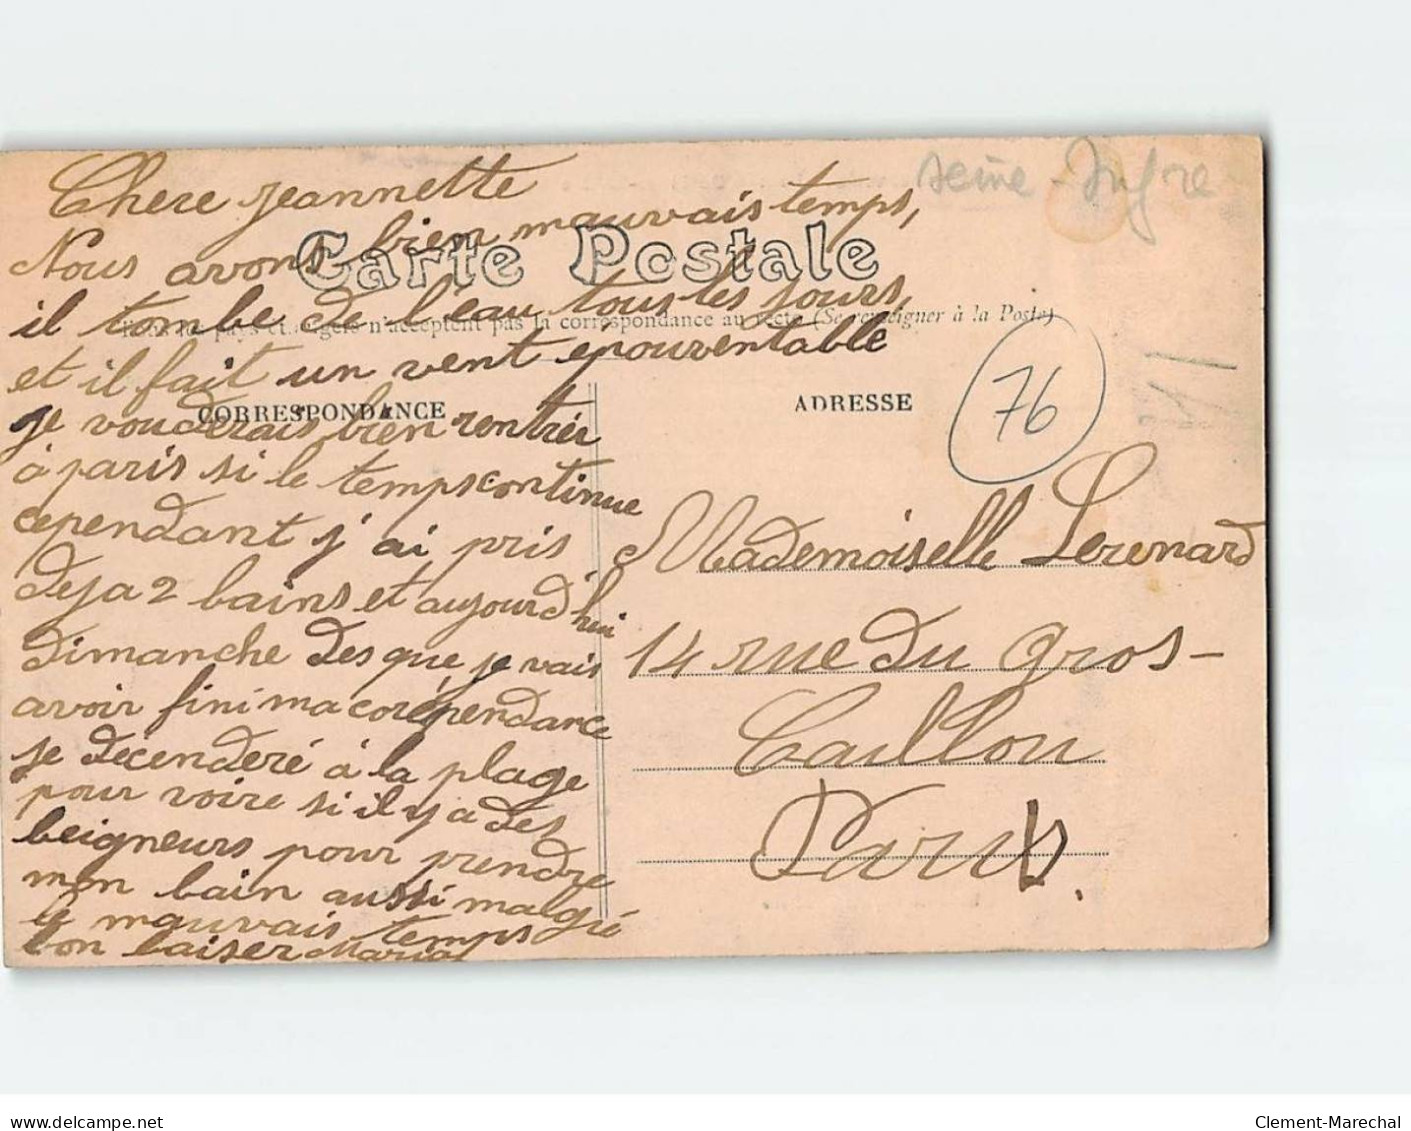 Chere jeannette
Nous avons bien mauvais temps,
il tombe de l'eau tous les jours,
et il fait un vent epouventable
je vouderais bien rentrér
à paris si le temps continue
cependant j'ai pris
deja 2 bains et aujourd'hui
dimanche des que je vais
avoir fini ma corépendance
je décenderé à la plage
pour voire si il y a des
beigneurs pour prendre
mon bain aussi malgré
le mauvais temps
bon baiser Maria
Carte Postale
n'acceptent pas la correspondance au recto (Se renseigner à la Poste)
CORRESPONDANCE
ADRESSE
Seine-Infre
76
Mademoiselle Lerenard
14 rue du Gros-
Caillou
Paris.
delcampe.net
Clement-Marechal